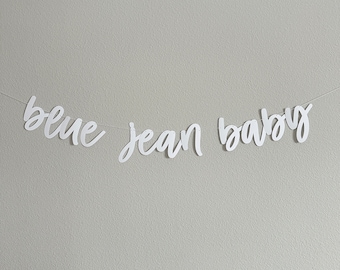 blue jean baby